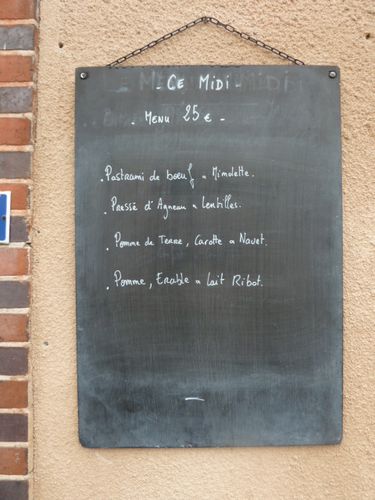 - Ce Midi -
- Menu 25 € -
. Pastrami de boeuf & Mimolette.
. Pressé d'Agneau & Lentilles.
. Pomme de Terre, Carotte & Navet.
. Pomme, Erable & Lait Ribot.